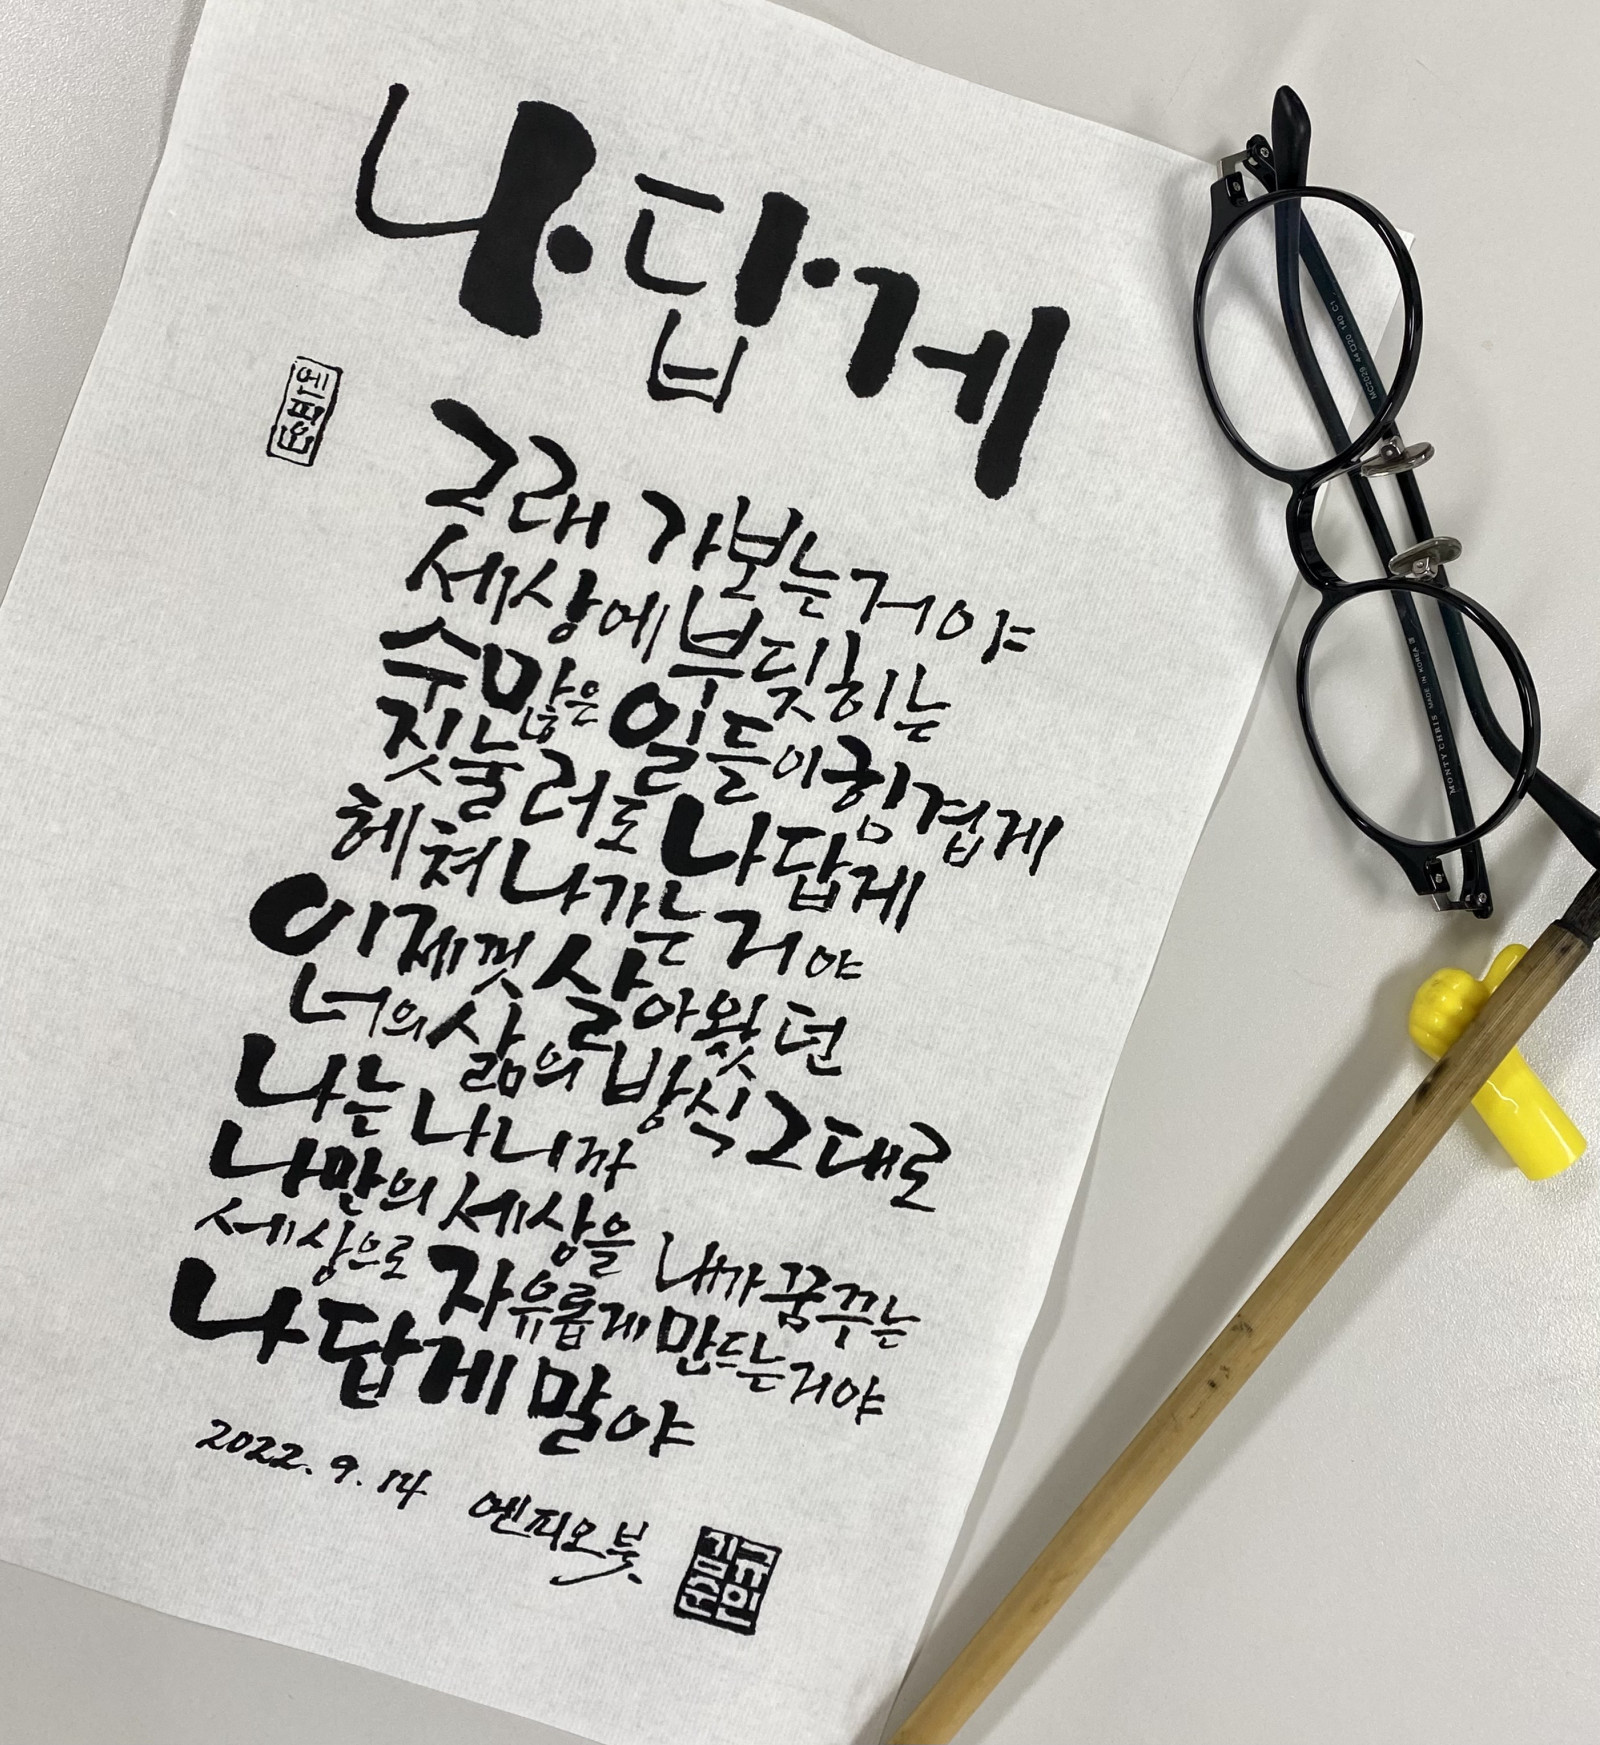 나답게
엔피오
그래 가보는거야
세상에 부딪히는
수많은 일들이 힘겹게
짓눌러도 나답게
헤쳐나가는거야
이제껏 살아왔던
너의 삶의 방식 그대로
나는 나니까
나만의 세상을 내가 꿈꾸는
세상으로 자유롭게 만드는거야
나답게 말야
2022. 9. 14 엔피오붓
MC2029 44□20 140 C1
MONTYCHRIS MADE IN KOREA